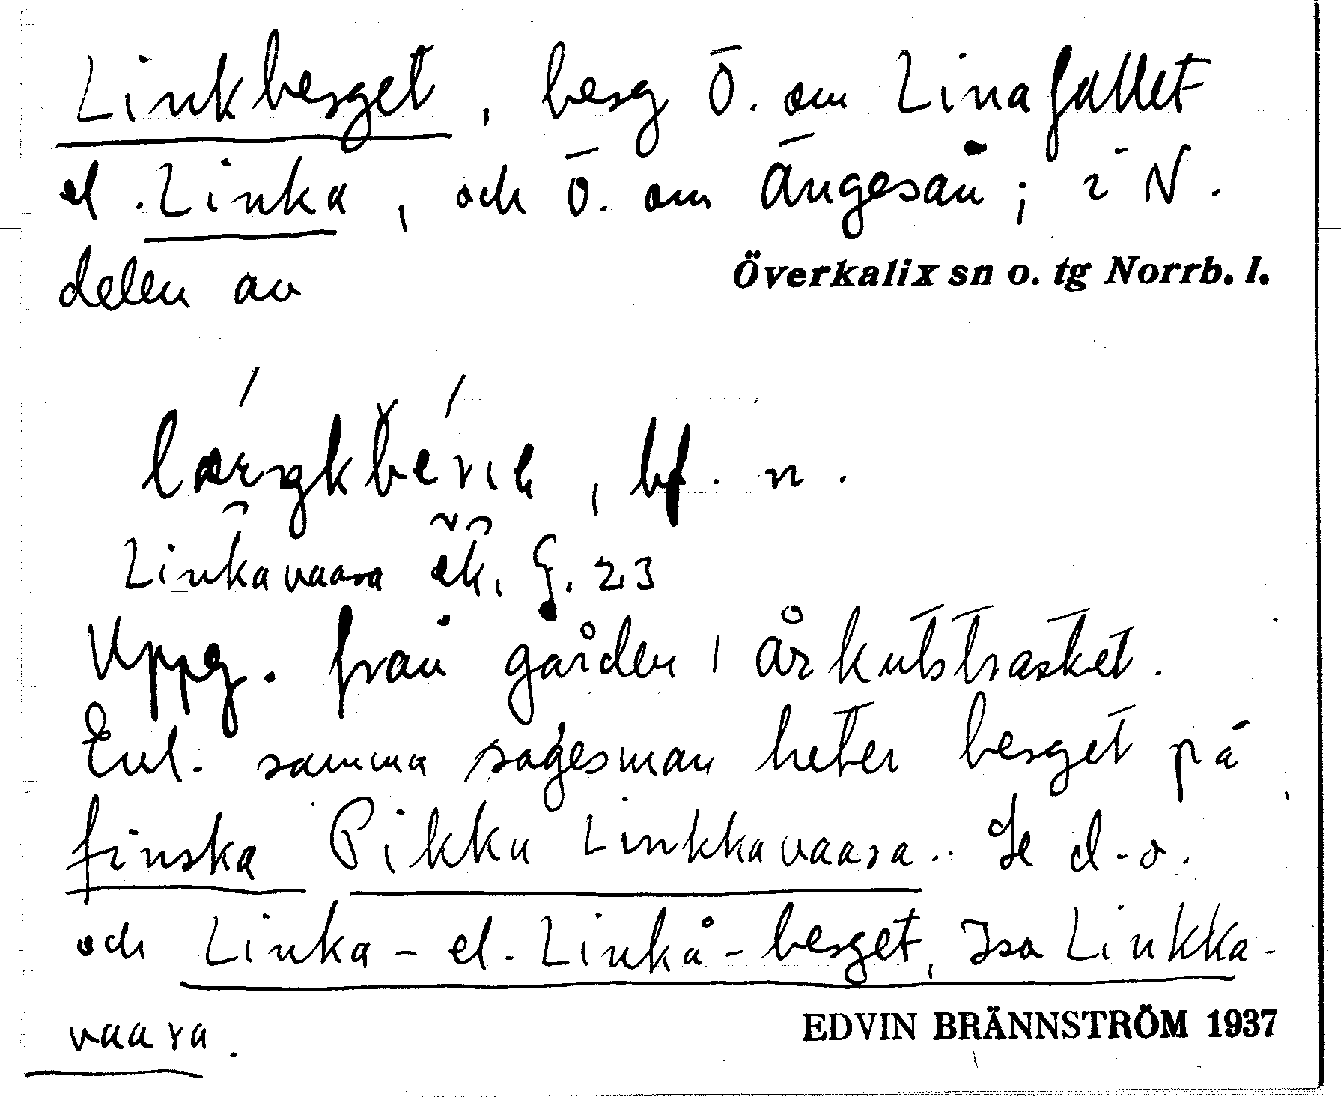 Linkberget, berg Ö. om Linafallet
el. Linka, och Ö. om Ängesån; i N.
delen av
Överkalix sn o. tg Norrb. l.
, bf. n.
Linkavaara ek. 23
Uppg. från gården i Årkutsträsket.
Enl. samma sagesman heter berget på
finska Pikku Linkkavaara. Se d.o.
och Linka- el. Linkå-berget, Iso Linkka-
vaara.
EDVIN BRÄNNSTRÖM 1937